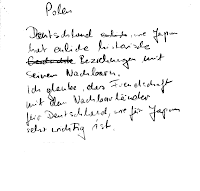 Polen
Deutschland, wie Japan
hat
Beziehungen mit
seinen Nachbarn.
Ich glaube, dass Freundschaft
mit den Nachbarländer
für Deutschland, wie für Japan
sehr wichtig ist.